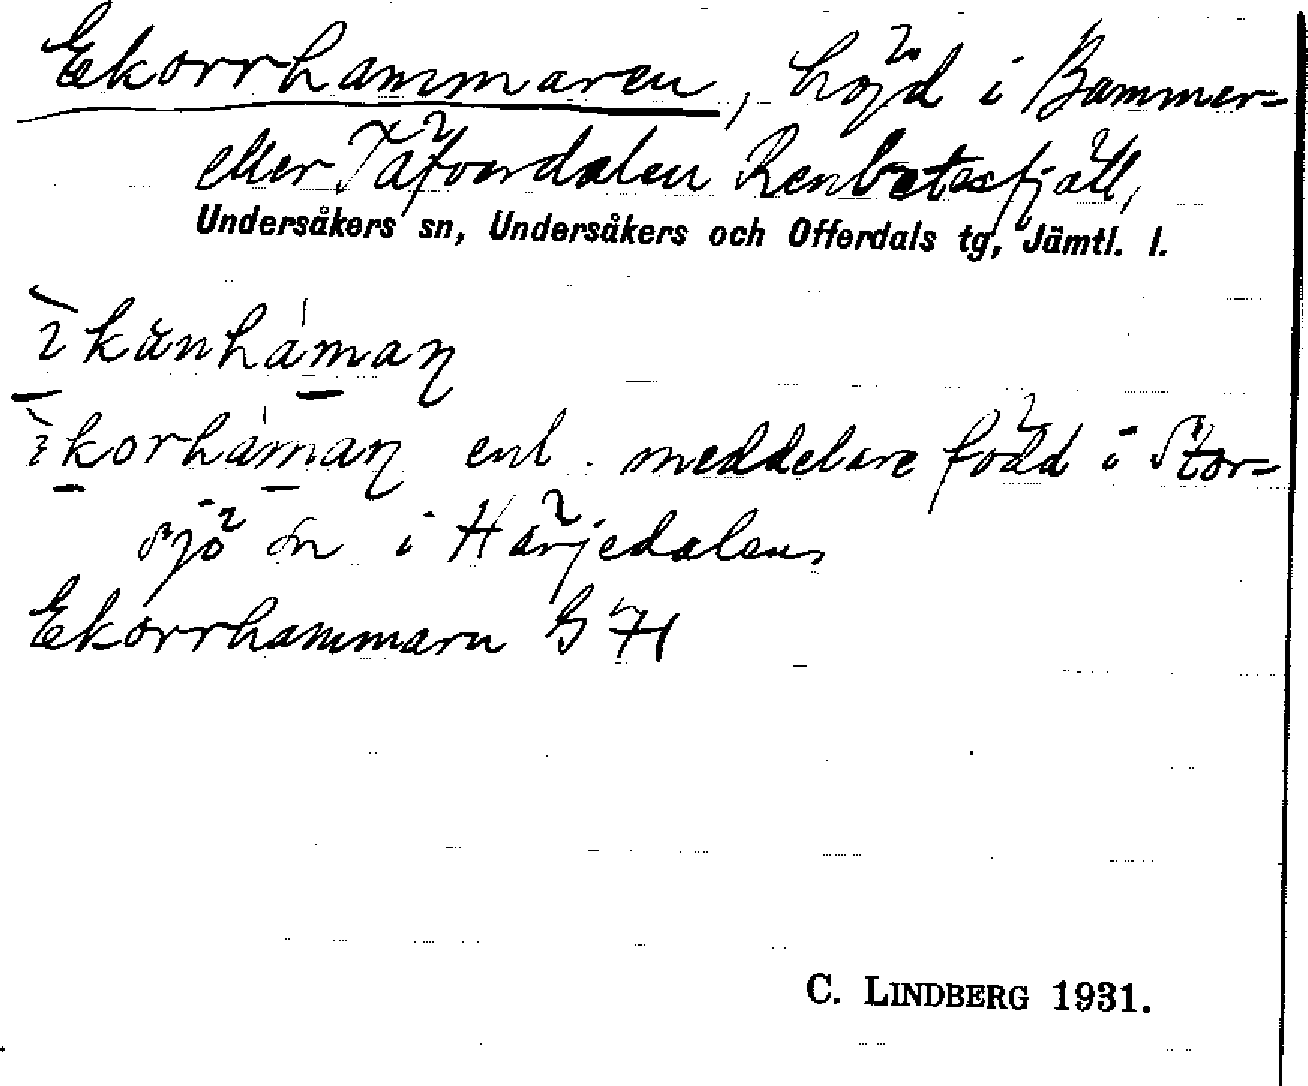 Ekorrhammaren, höjd i Bammer-
eller Täfverdalen Renbetesfjäll,
Undersåkers sn, Undersåkers och Offerdals tg, Jämtl. l.
enl. meddelare född i Stor-
sjö sn i Härjedalen
Ekorrhammarn G H
C. LINDBERG 1931.